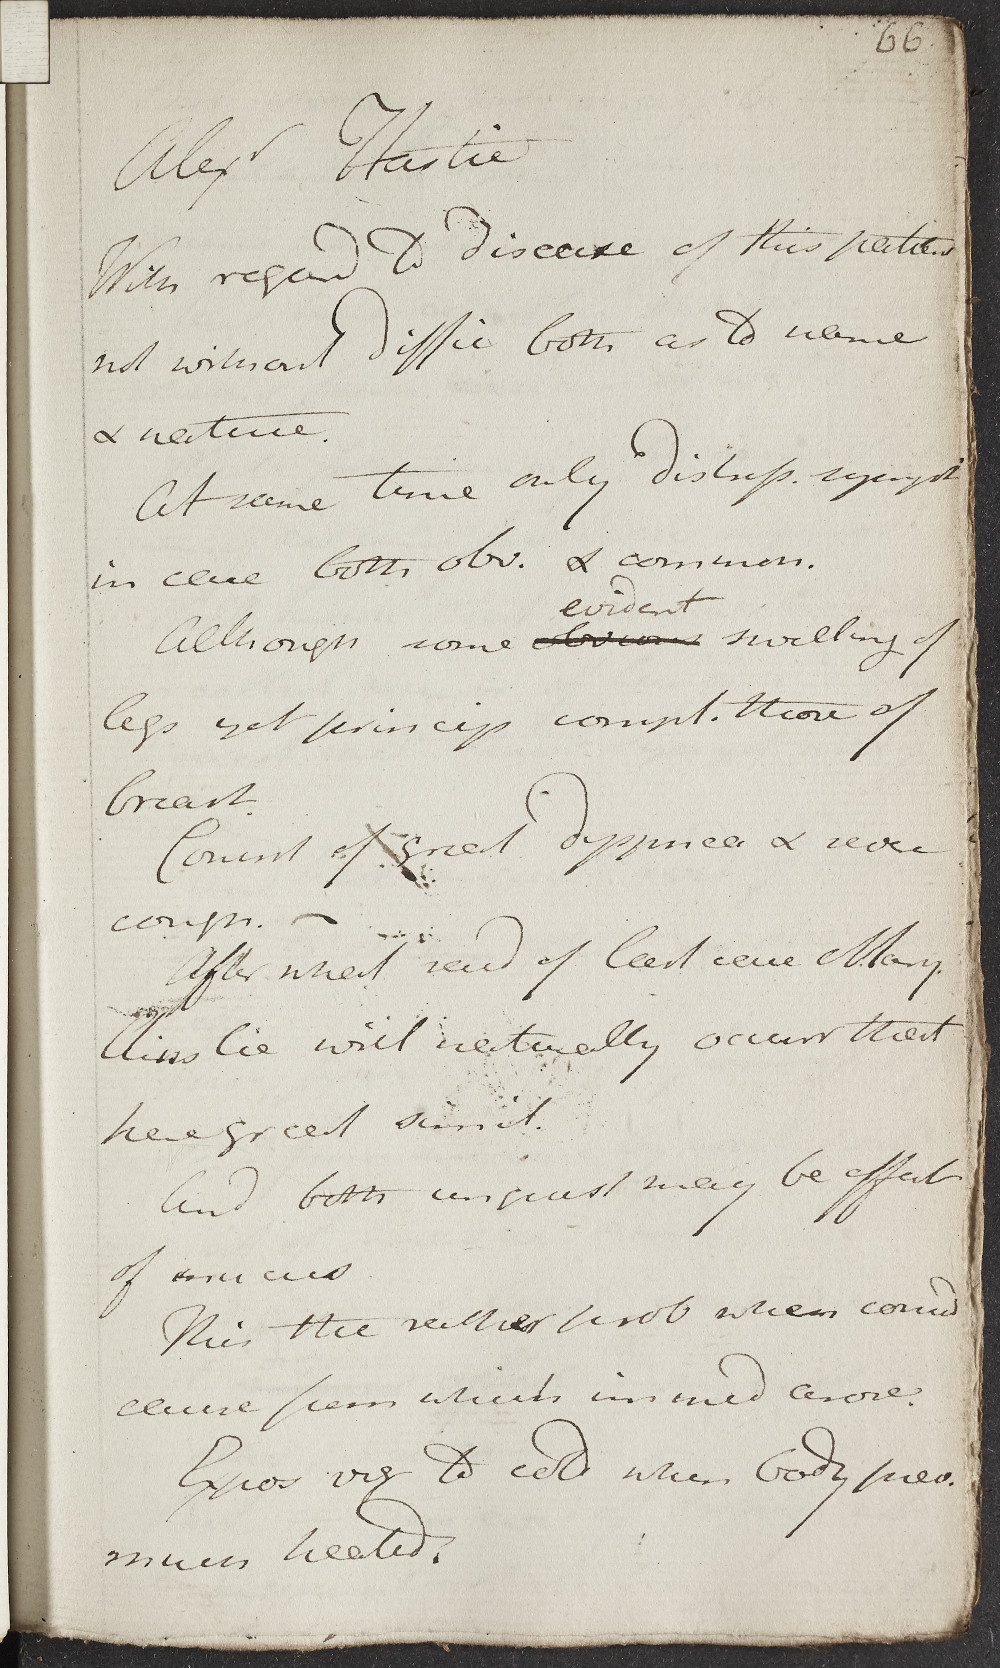 66
Alexr Hastie
With regard to disease of this patient
not without diffic both as to name
& nature.
At same time only distress. sympt
in case both obv. & common.
evident
Although some obvious swelling of
legs yet princip compl. those of
breast.
Consist of great dyspnoea & severe
cough.
After what said of last case Mary
Ainslie will naturally occurr that
here great simil.
And both in great may be effect
of mucus
This the rather prob when consid
cause from which immed arose.
Expos viz to cold when body prev.
much heated.